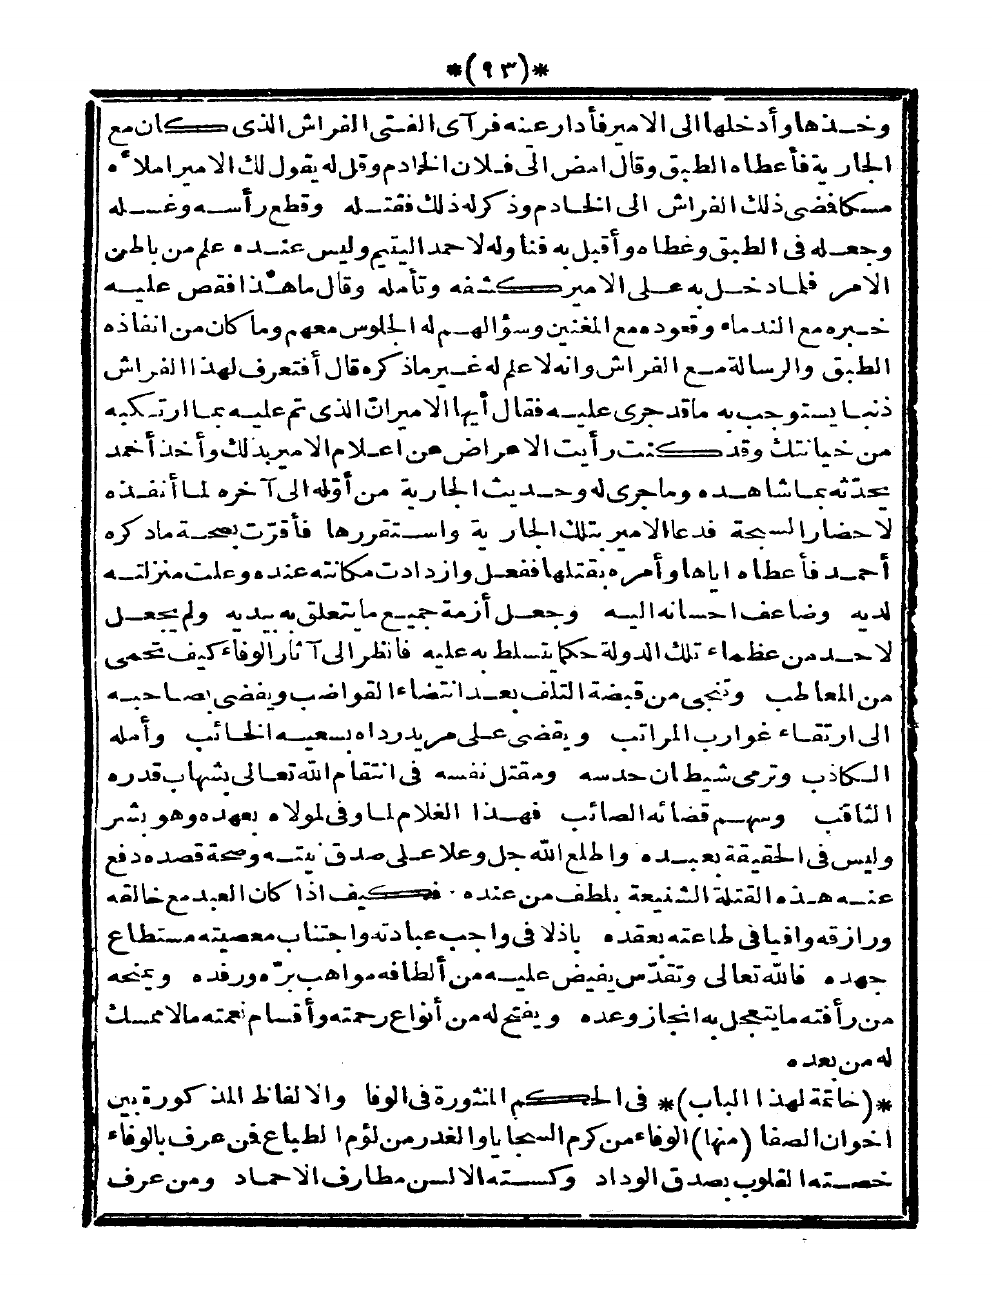 *(٩٣)*
وخذها وأدخلها الى الامير فأدار عنه فرآى الفتى الفراش الذى كان مع
الجارية فأعطاه الطبق وقال امض الى فلان الخادم وقل له يقول لك الامير املاه
مسكا فضى ذلك الفراش الى الخادم وذكر له ذلك فقتله وقطع رأسه وغسله
وجعله فى الطبق وغطاه وأقبل به فناوله لاحمد اليتيم وليس عنده علم من باطن
الامر فلما دخل به على الامير كشفه وتأمله وقال ما هذا فقص عليه
خبره مع الندماء وقعوده مع المغنين وسؤالهم له الجلوس معهم وما كان من انفاذه
الطبق والرسالة مع الفراش وانه لا علم له غير ما ذكره قال أفتعرف لهذا الفراش
ذنبا يستوجب به ما قد جرى عليه فقال أيها الامير ان الذى تم عليه بما ارتكبه
من خيانتك وقد كنت رأيت الاعراض عن اعلام الامير بذلك وأخذ أحمد
يحدثه بما شاهده وما جرى له وحديث الجارية من أوله الى آخره لما أنفذه
لاحضار السبحة فدعا الامير بتلك الجارية واستقررها فأقرت بصحة ما ذكره
أحمد فأعطاه اياها وأمره بقتلها ففعل وازدادت مكانته عنده وعلت منزلته
لديه وضاعف احسانه اليه وجعل أزمة جميع ما يتعلق به بيديه ولم يجعل
لاحد من عظماء تلك الدولة حكما يتسلط به عليه فانظر الى آثار الوفاء كيف تحمى
من المعاطب وتنجى من قبضة التلف بعد انتضاء القواضب ويفضى بصاحبه
الى ارتقاء غوارب المراتب ويقضى على مريد رداه بسعيه الخائب وأمله
الكاذب وترمى شيطان حدسه ومقتل نفسه فى انتقام الله تعالى بشهاب قدره
الثاقب وسهم قضائه الصائب فهذا الغلام لما وفى لمولاه بعهده وهو بشر
وليس فى الحقيقة بعبده واطلع الله جل وعلا على صدق نيته وصحة قصده دفع
عنه هذه القتلة الشنيعة بلطف من عنده فكيف اذا كان العبد مع خالقه
ورازقه وافيا فى طاعته بعقده باذلا فى واجب عبادته واجتناب معصيته مستطاع
جهده فالله تعالى وتقدس يفيض عليه من ألطافه مواهب بره ورفده ويمنحه
من رأفته ما يتعجل به انجاز وعده ويفتح له من أنواع رحمته وأقسام نعمته ما لا ممسك
له من بعده
*(خاتمة لهذا الباب)* فى الحكم المنثورة فى الوفا والالفاظ المذكورة بين
اخوان الصفا (منها) الوفاء من كرم السجايا والغدر من لؤم الطباع فمن عرف بالوفاء
خصته القلوب بصدق الوداد وكسته الالسن مطارف الاحماد ومن عرف